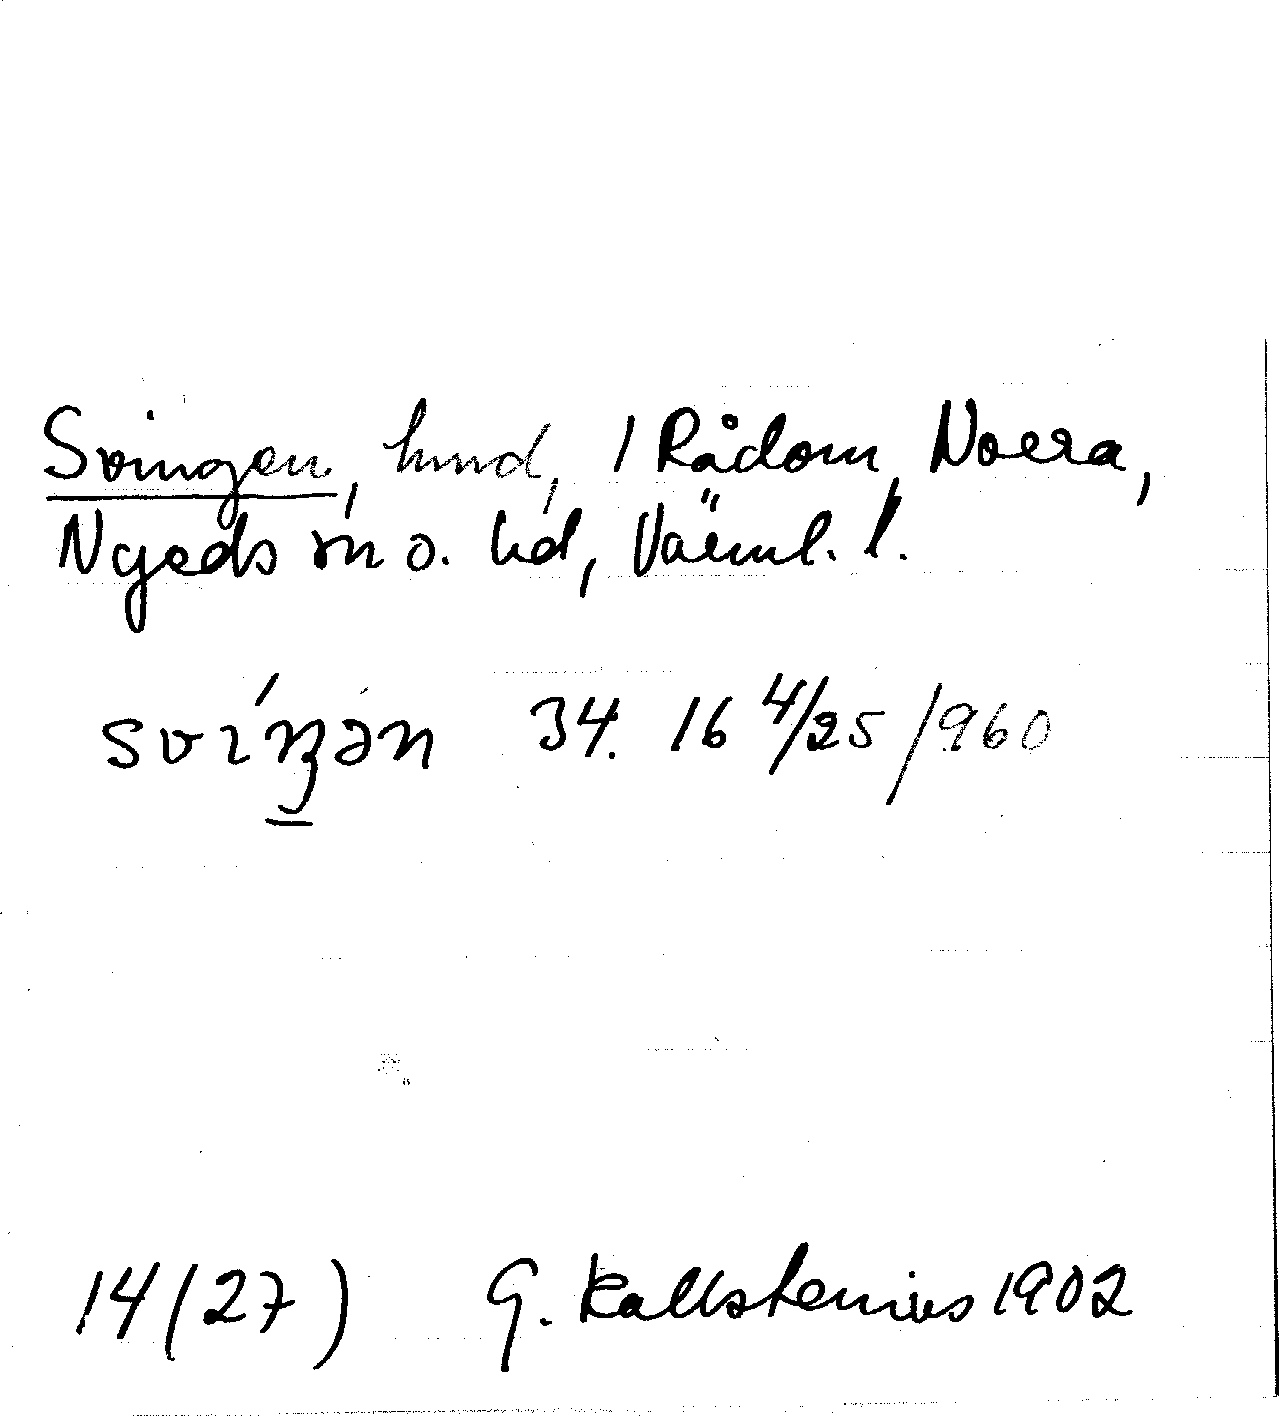 Svingen, hmd, 1 Rådom, Norra,
Nyeds sn o. hd, Värml. l.
svíŋən 34. 16 4/25 /960
14(27) G. Kallstenius 1902